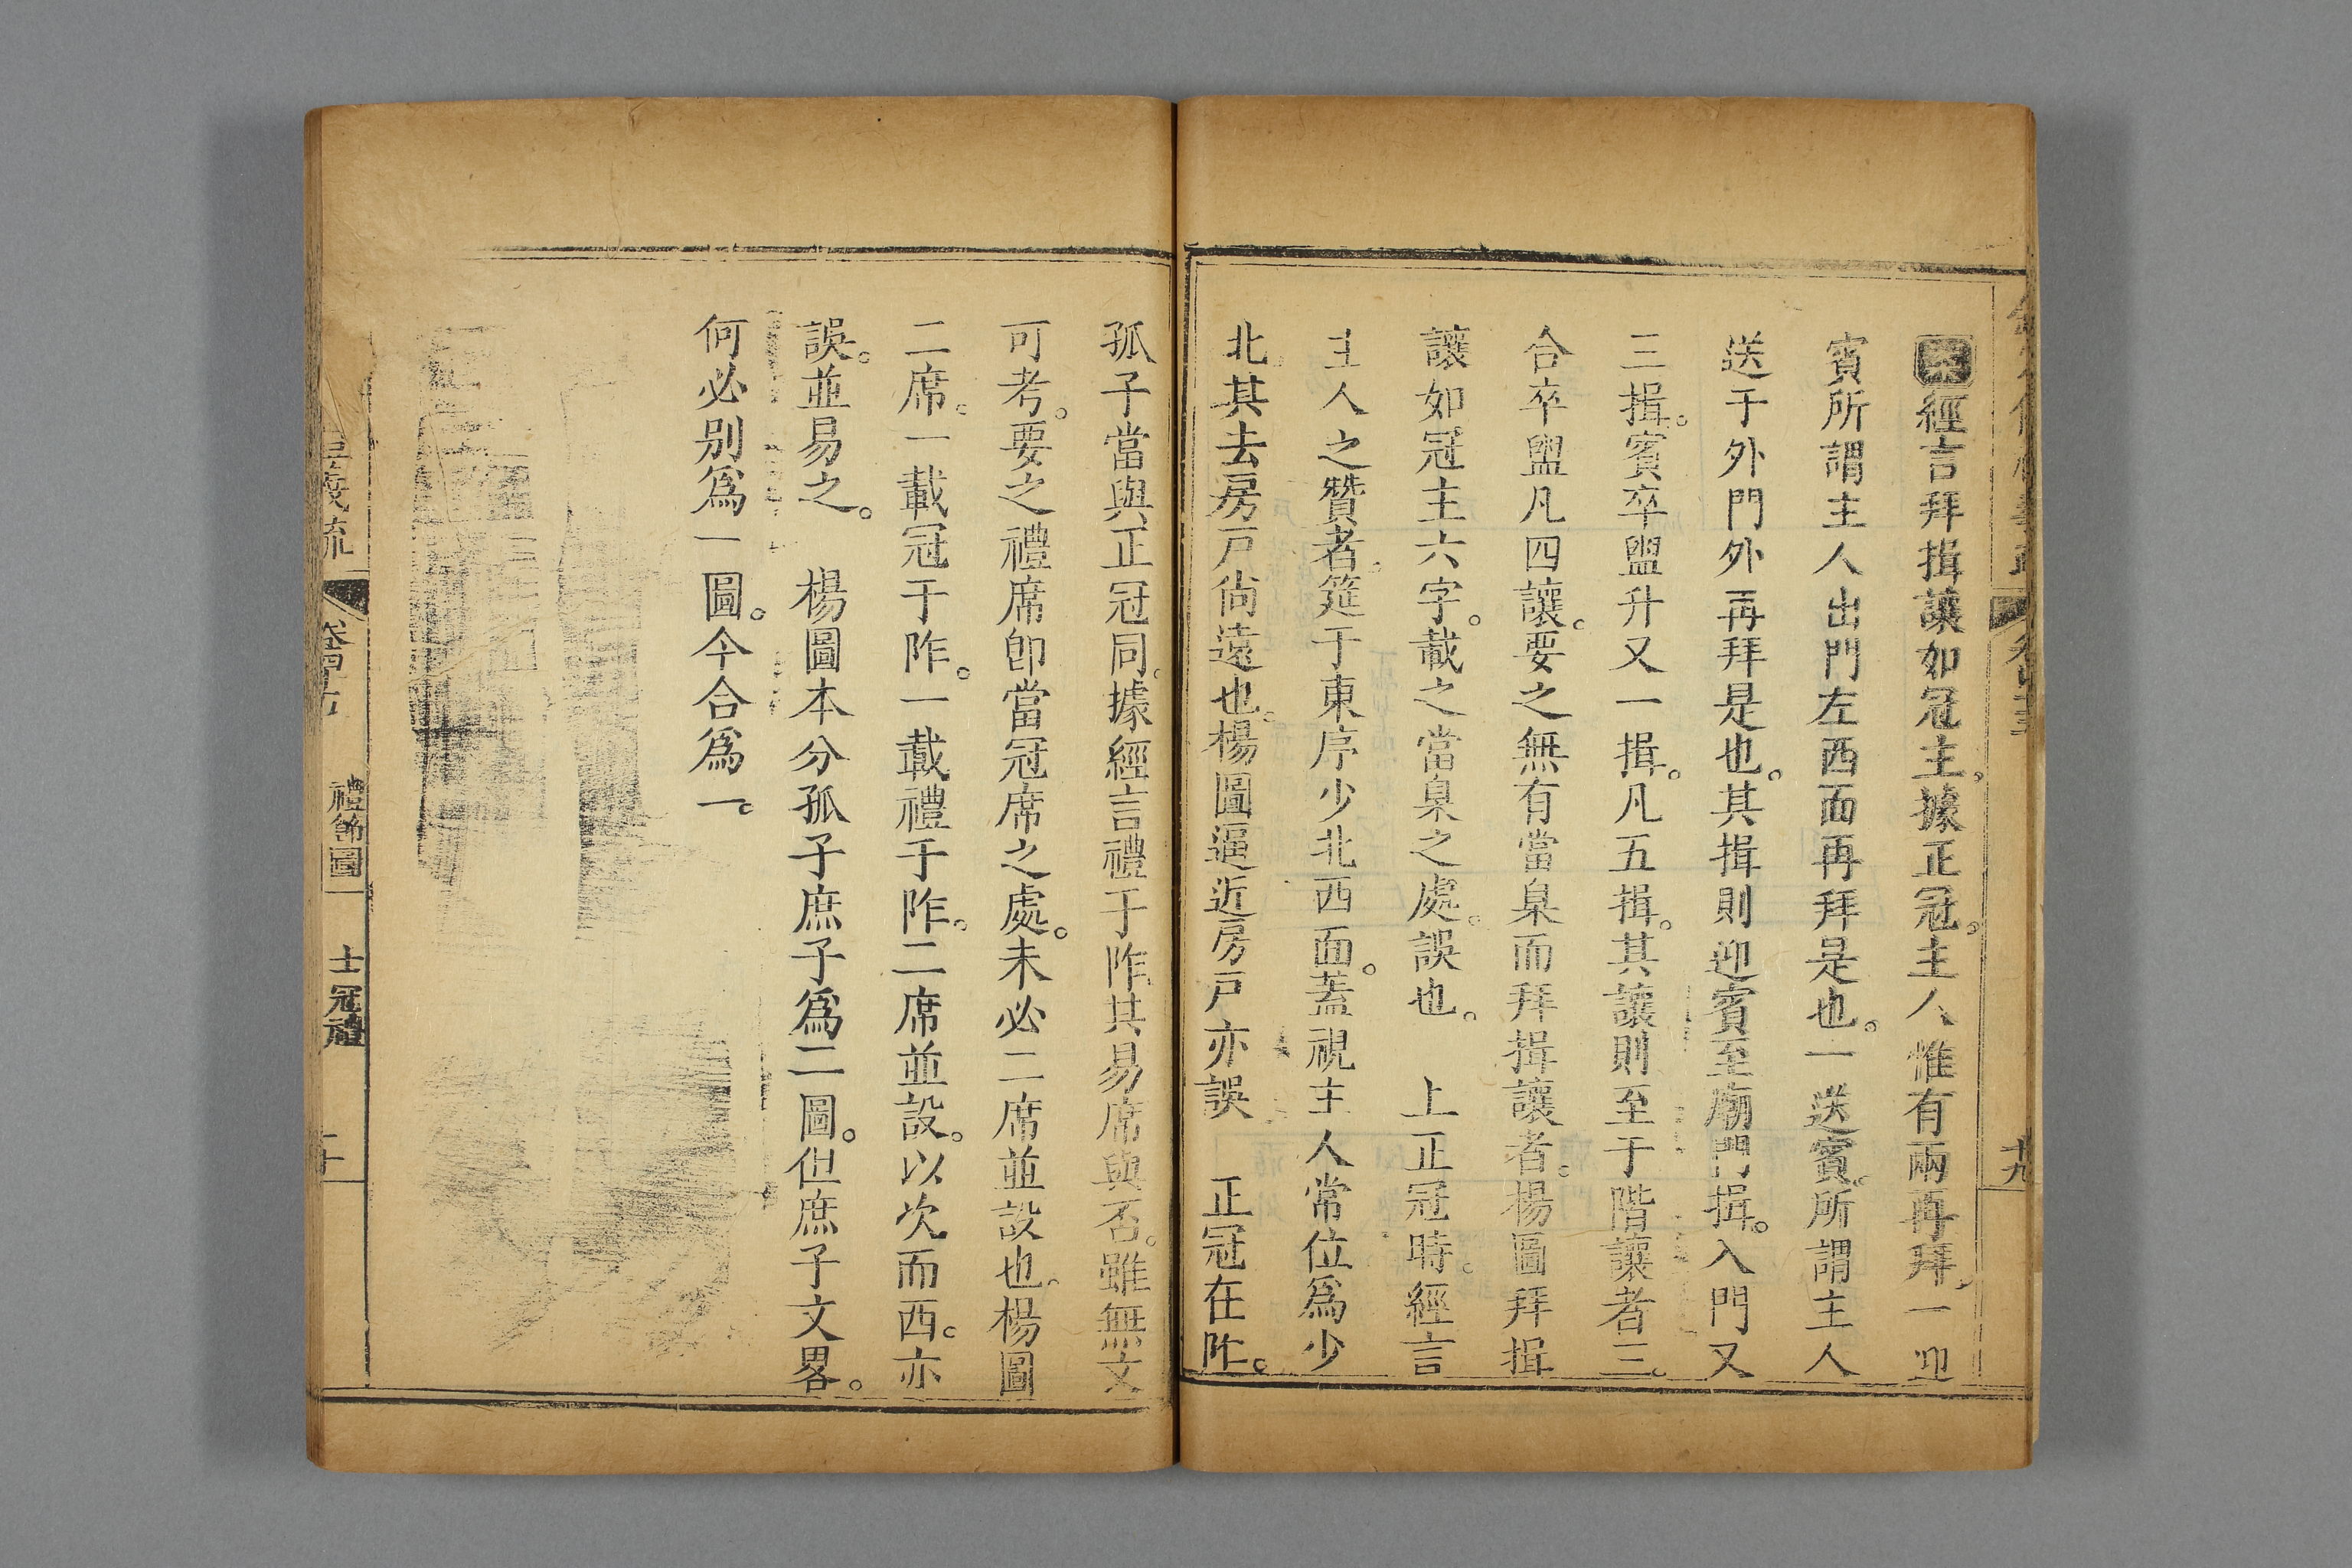 案經言拜揖讓如冠主。據正冠。主人惟有兩再拜。一迎
賓所謂主人出門左西面再拜是也。一送賓。所謂主人
送于外門外再拜是也。其揖則迎賓至廟門揖。入門又
三揖。賓卒盥升又一揖。凡五揖。其讓則至于階讓者三。
合卒盥凡四讓。要之無有當臬而拜揖讓者。楊圖拜揖
讓如冠主六字。載之當臬之處。誤也。　上正冠時。經言
主人之贊者。筵于東序少北西面。蓋視主人常位爲少
北。其去房戸尙遠也。楊圖逼近房戸亦誤　正冠在阼。
孤子當與正冠同。據經言禮于阼。其易席與否。雖無文
可考。要之禮席卽當冠席之處。未必二席並設也。楊圖
二席。一載冠于阼。一載禮于阼。二席並設。以次而西。亦
誤。並易之。　楊圖本分孤子庶子爲二圖。但庶子文畧。
何必别爲一圖。今合爲一。
義疏
禮節圖
士冠禮
十九